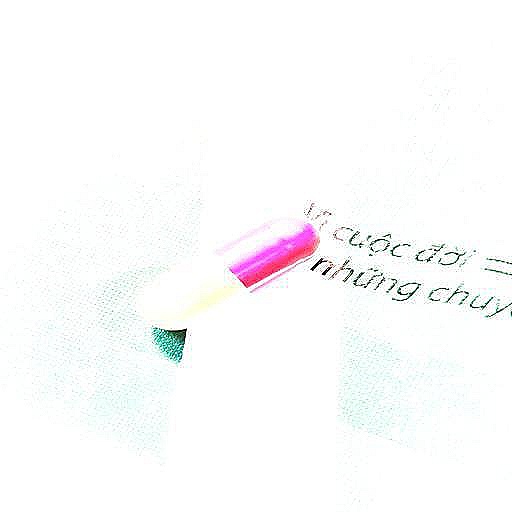 Vì cuộc đời =
những chuy